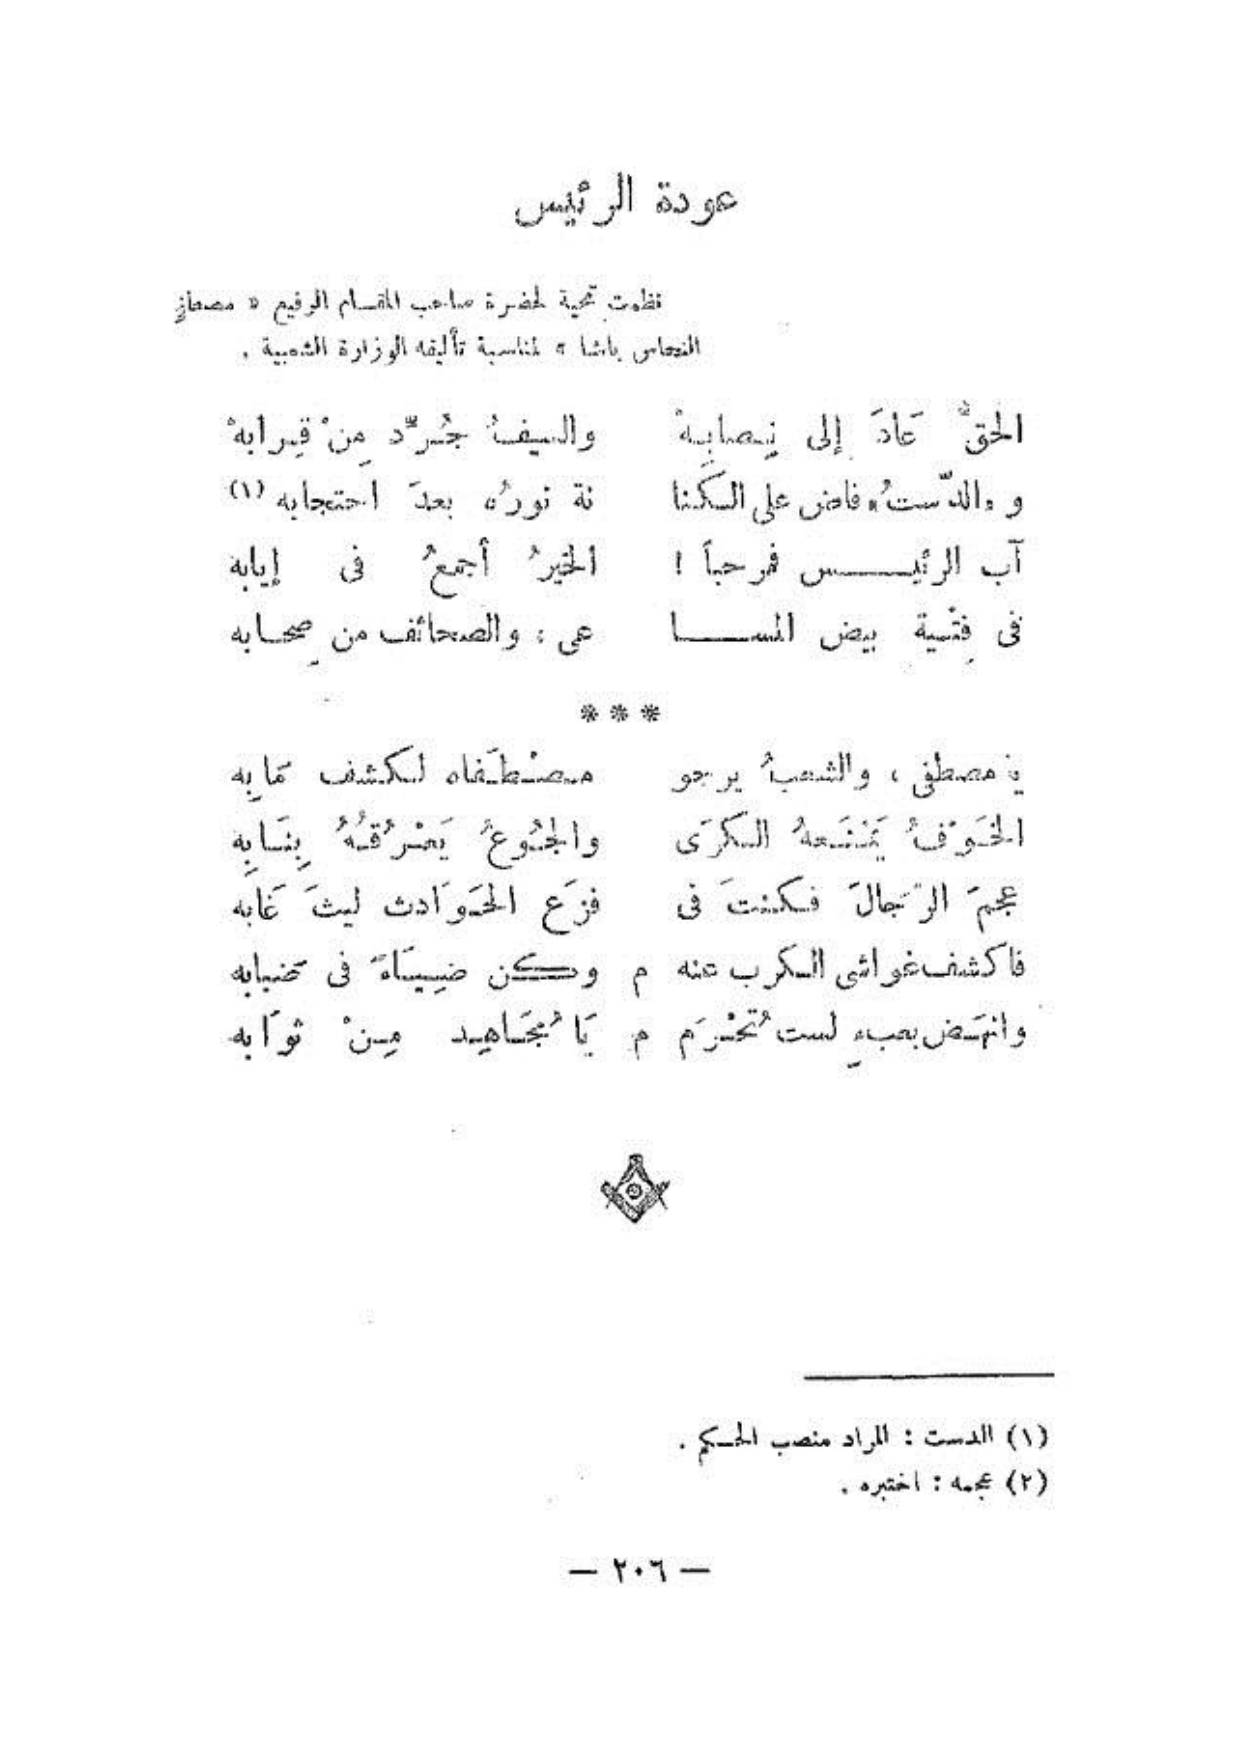 عودة الرئيس
نظمت تحية لحضرة صاحب المقام الرفيع « مصطفى
النحاس باشا » لمناسبة تأليفه الوزارة الشعبية .
الحقُّ عَادَ إلى نِصابِهْ والسيفُ جُرِّد مِنْ قِرابهْ
و «الدّستُ» فاض على الكنا نة نورُه بعدَ احتجابه (١)
آب الرئيس فمرحباً ! الخيرُ أجمعُ فى إيابه
فى فِتْية بيض المسا عى ؛ والصحائف من صِحابه
***
يا مصطفى ، والشعبُ يرجو مصْطَفاه لكشف مَا بِه
الخَوْفُ يَمْنَعهُ الكرَى والجُوعُ يَعْرُقُهُ بِنَابِه
عجمَ الرّجالَ فكنتَ فى فزَع الحَوَادث ليثَ غَابه
فاكشف غواشى الكرب عنه م وكن ضِيَاءً فى ضبابه
وانهَض بعبءٍ لست تُحْرَم م يَا مُجَاهِد مِنْ ثوَابه
(١) الدست : المراد منصب الحكم .
(٢) عجمه : اختبره .
— ٢٠٦ —